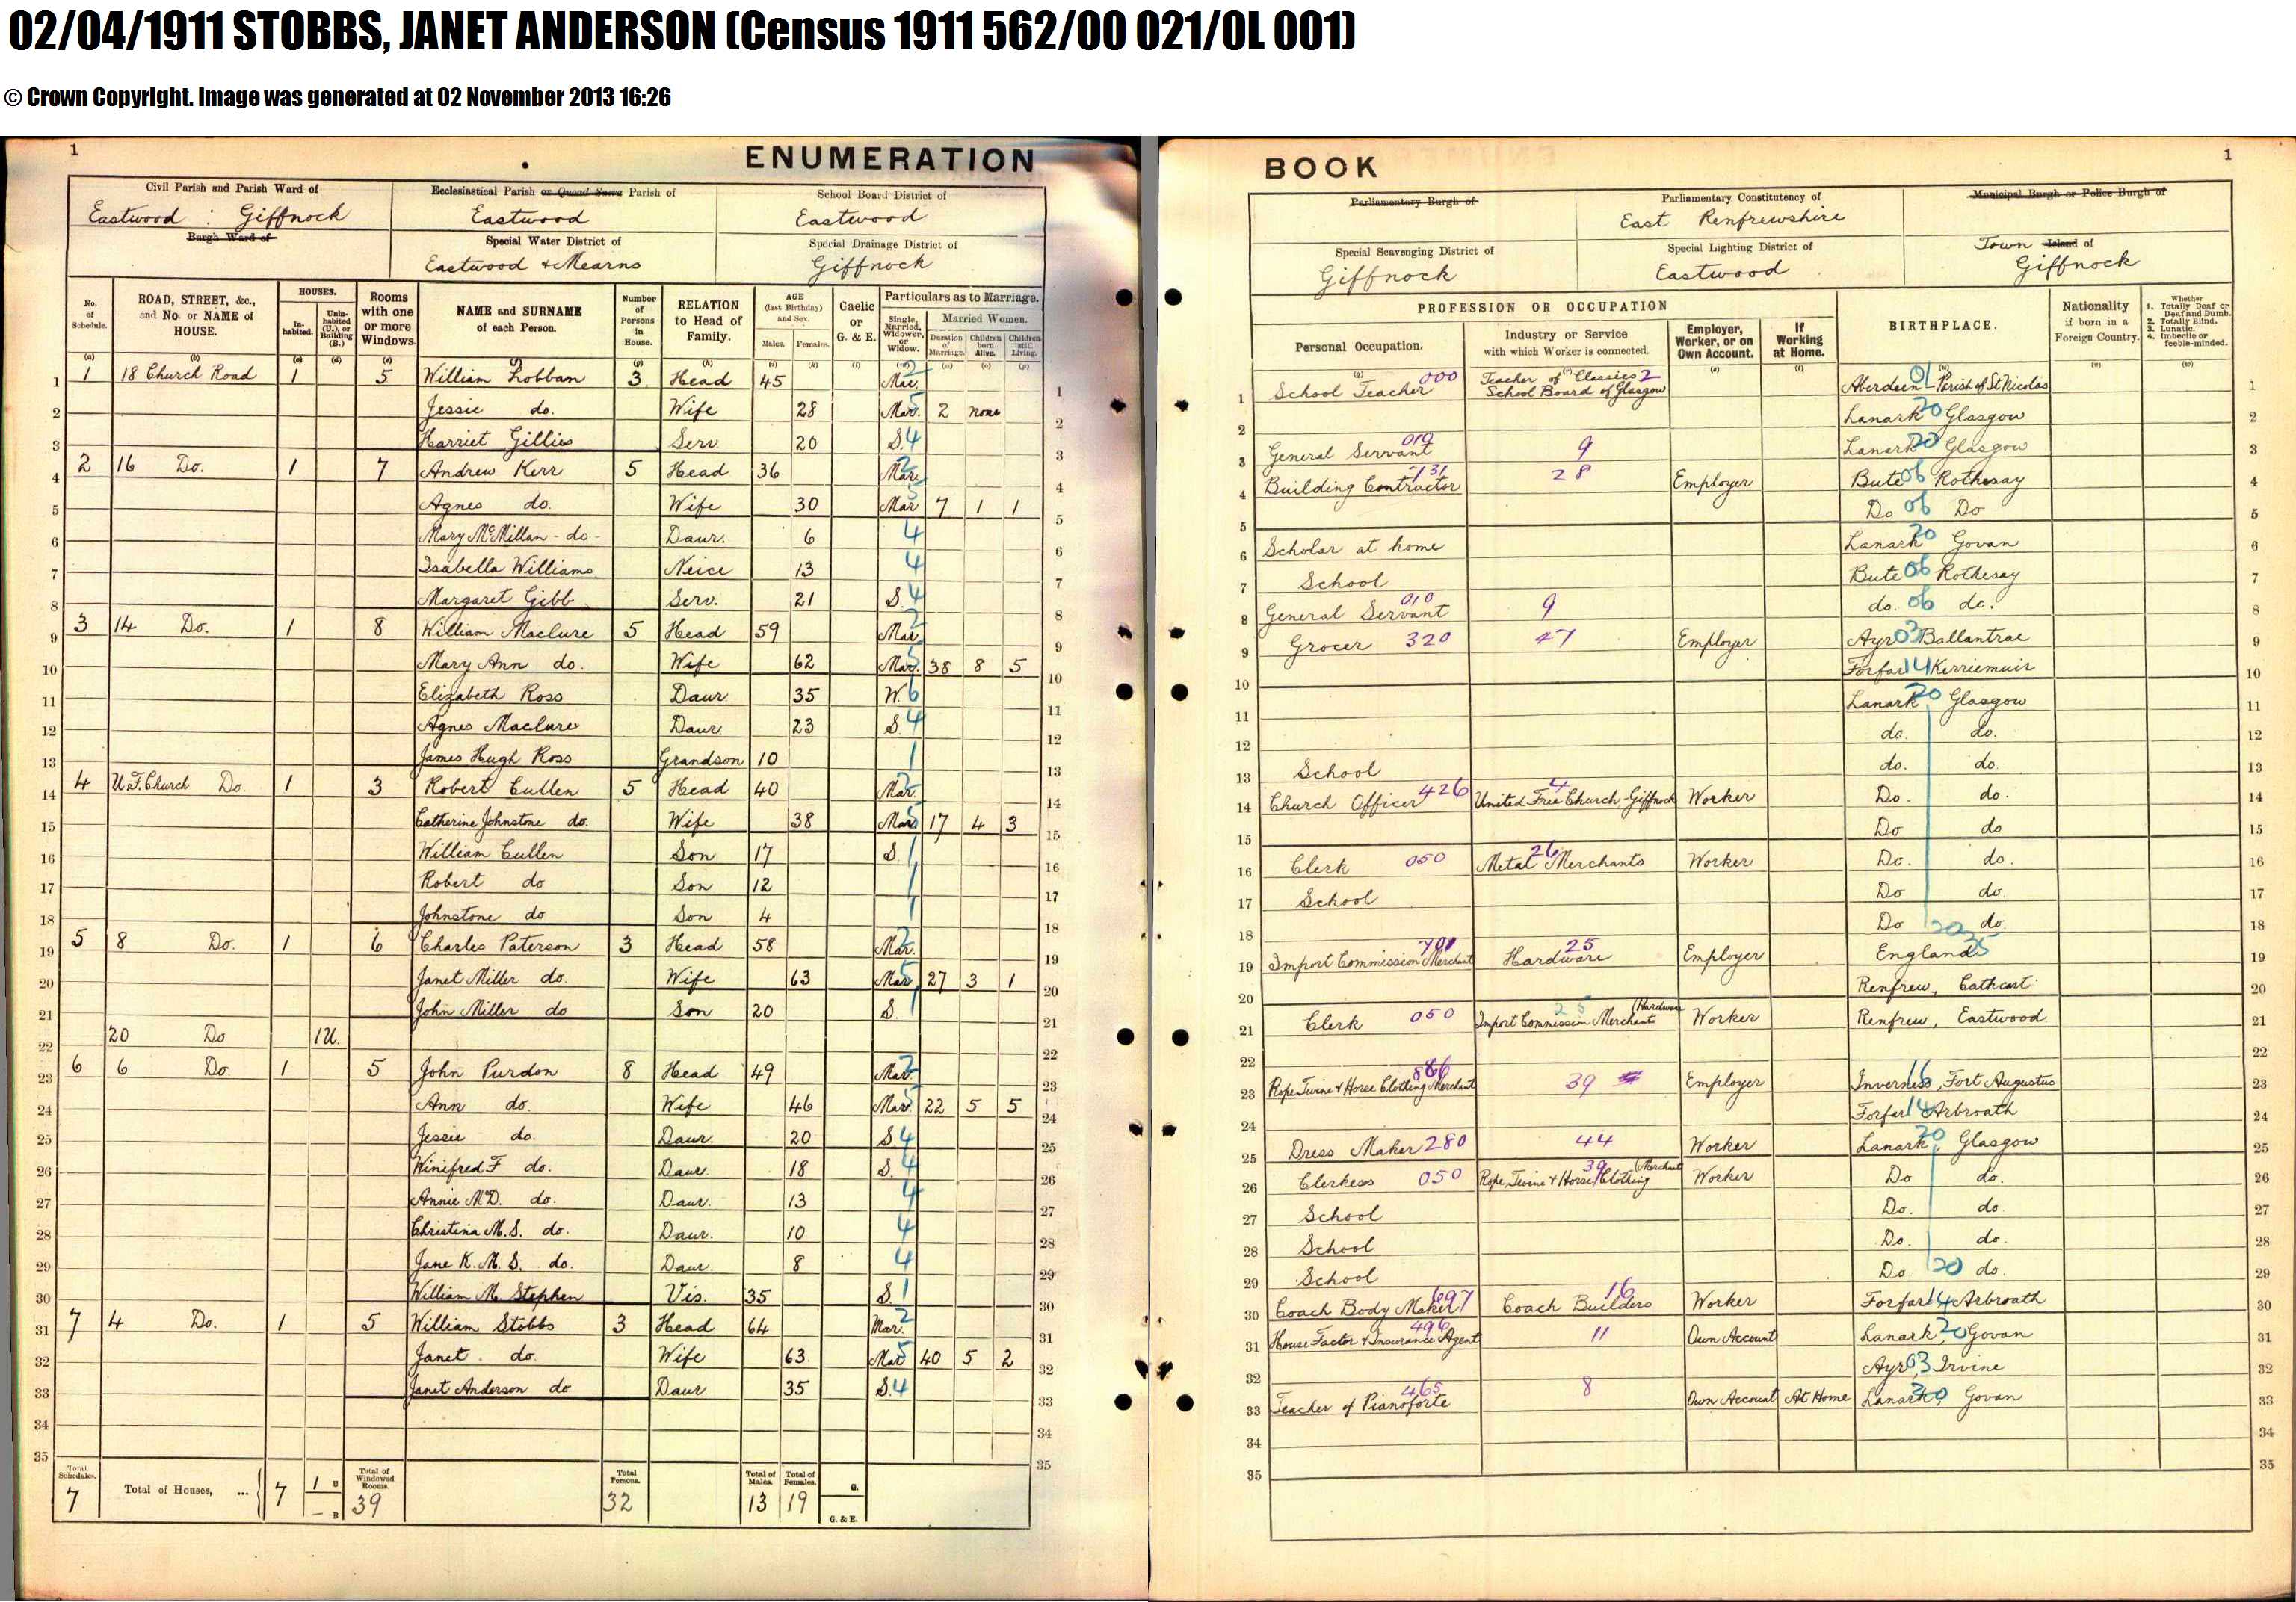 02/04/1911 STOBBS, JANET ANDERSON (Census 1911 562/00 021/0L 001)
© Crown Copyright. Image was generated at 02 November 2013 16:26
1 ENUMERATION
Civil Parish and Parish Ward of Ecclesiastical Parish or Quoad Sacra Parish of School Board District of
Eastwood : Giffnock Eastwood Eastwood
Burgh Ward of Special Water District of Special Drainage District of
Eastwood & Mearns Giffnock
No. of Schedule. ROAD, STREET, &c., and No. or NAME of HOUSE. HOUSES. Inhabited. Uninhabited (U.), or Building (B.) Rooms with one or more Windows. NAME and SURNAME of each Person. Number of Persons in House. RELATION to Head of Family. AGE (last Birthday) and Sex. Males. Females. Gaelic or G. & E. Particulars as to Marriage. Single, Married, Widower, or Widow. Married Women. Duration of Marriage. Children born Alive. Children still Living.
1 1 18 Church Road 1 5 William Lobban 3 Head 45 Mar. 2 1
2 Jessie do. Wife 28 Mar. 5 2 none 2
3 Harriet Gillies Serv. 20 S. 4 3
4 2 16 Do. 1 7 Andrew Kerr 5 Head 36 Mar. 2 4
5 Agnes do. Wife 30 Mar 5 7 1 1 5
6 Mary McMillan - do - Daur. 6 4 6
7 Isabella Williams Neice 13 4 7
8 Margaret Gibb Serv. 21 S. 4 8
9 3 14 Do. 1 8 William Maclure 5 Head 59 Mar. 2 9
10 Mary Ann do. Wife 62 Mar. 5 38 8 5 10
11 Elizabeth Ross Daur. 35 W. 6 11
12 Agnes Maclure Daur 23 S. 4 12
13 James Hugh Ross Grandson 10 1 13
14 4 U.F. Church Do. 1 3 Robert Cullen 5 Head 40 Mar. 2 14
15 Catherine Johnstone do. Wife 38 Mar 5 17 4 3 15
16 William Cullen Son 17 S. 1 16
17 Robert do Son 12 1 17
18 Johnstone do Son 4 1 18
19 5 8 Do. 1 6 Charles Paterson 3 Head 58 Mar. 2 19
20 Janet Miller do. Wife 63 Mar 5 27 3 1 20
21 John Miller do Son 20 S. 1 21
22 20 Do 1U. 22
23 6 6 Do. 1 5 John Purdon 8 Head 49 Mar. 2 23
24 Ann do. Wife 46 Mar. 5 22 5 5 24
25 Jessie do. Daur. 20 S. 4 25
26 Winifred F do. Daur. 18 S. 4 26
27 Annie McD. do. Daur. 13 4 27
28 Christina M. S. do. Daur. 10 4 28
29 Jane K. M. S. do. Daur 8 4 29
30 William M. Stephen Vis. 35 S. 1 30
31 7 4 Do. 1 5 William Stobbs 3 Head 64 Mar. 2 31
32 Janet do. Wife 63 Mar 5 40 5 2 32
33 Janet Anderson do Daur. 35 S. 4 33
34 34
35 35
Total Schedules. 7 Total of Houses, ... 7 1 U — B Total of Windowed Rooms. 39 Total Persons. 32 Total of Males. 13 Total of Females. 19 G. G. & E.
BOOK 1
Parliamentary Burgh of Parliamentary Constituency of Municipal Burgh or Police Burgh of
East Renfrewshire
Special Scavenging District of Special Lighting District of Town Island of
Giffnock Eastwood Giffnock
PROFESSION OR OCCUPATION BIRTHPLACE. Nationality if born in a Foreign Country. Whether 1. Totally Deaf or Deaf and Dumb. 2. Totally Blind. 3. Lunatic. 4. Imbecile or feeble-minded.
Personal Occupation. Industry or Service with which Worker is connected. Employer, Worker, or on Own Account. If Working at Home.
1 School Teacher 000 Teacher of Classics 2 School Board of Glasgow Aberdeen 01 Parish of St Nicolas 1
2 Lanark 20 Glasgow 2
3 General Servant 010 9 Lanark 20 Glasgow 3
4 Building Contractor 731 28 Employer Bute 06 Rothesay 4
5 Do 06 Do 5
6 Scholar at home Lanark 20 Govan 6
7 School Bute 06 Rothesay 7
8 General Servant 010 9 do. 06 do. 8
9 Grocer 320 47 Employer Ayr 03 Ballantrae 9
10 Forfar 14 Kerriemuir 10
11 Lanark 20 Glasgow 11
12 do. do. 12
13 School do. do. 13
14 Church Officer 426 United Free Church - Giffnock 4 Worker Do. do. 14
15 Do do 15
16 Clerk 050 Metal Merchants 26 Worker Do. do. 16
17 School Do do. 17
18 Do 20 do. 18
19 Import Commission Merchant 701 Hardware 25 Employer England 35 19
20 Renfrew, Cathcart 20
21 Clerk 050 Import Commission Merchants (Hardware 25 Worker Renfrew, Eastwood 21
22 22
23 Rope Twine & Horse Clothing Merchant 886 39 Employer Inverness 16, Fort Augustus 23
24 Forfar 14 Arbroath 24
25 Dress Maker 280 44 Worker Lanark 20, Glasgow 25
26 Clerkess 050 Rope, Twine & Horse Clothing (Merchant 39 Worker Do do. 26
27 School Do. do. 27
28 School Do. do. 28
29 School Do. 20 do. 29
30 Coach Body Maker 697 Coach Builders 16 Worker Forfar 14 Arbroath 30
31 House Factor & Insurance Agent 496 11 Own Account Lanark, 20 Govan 31
32 Ayr, 03 Irvine 32
33 Teacher of Pianoforte 465 8 Own Account At Home Lanark, 20 Govan 33
34 34
35 35